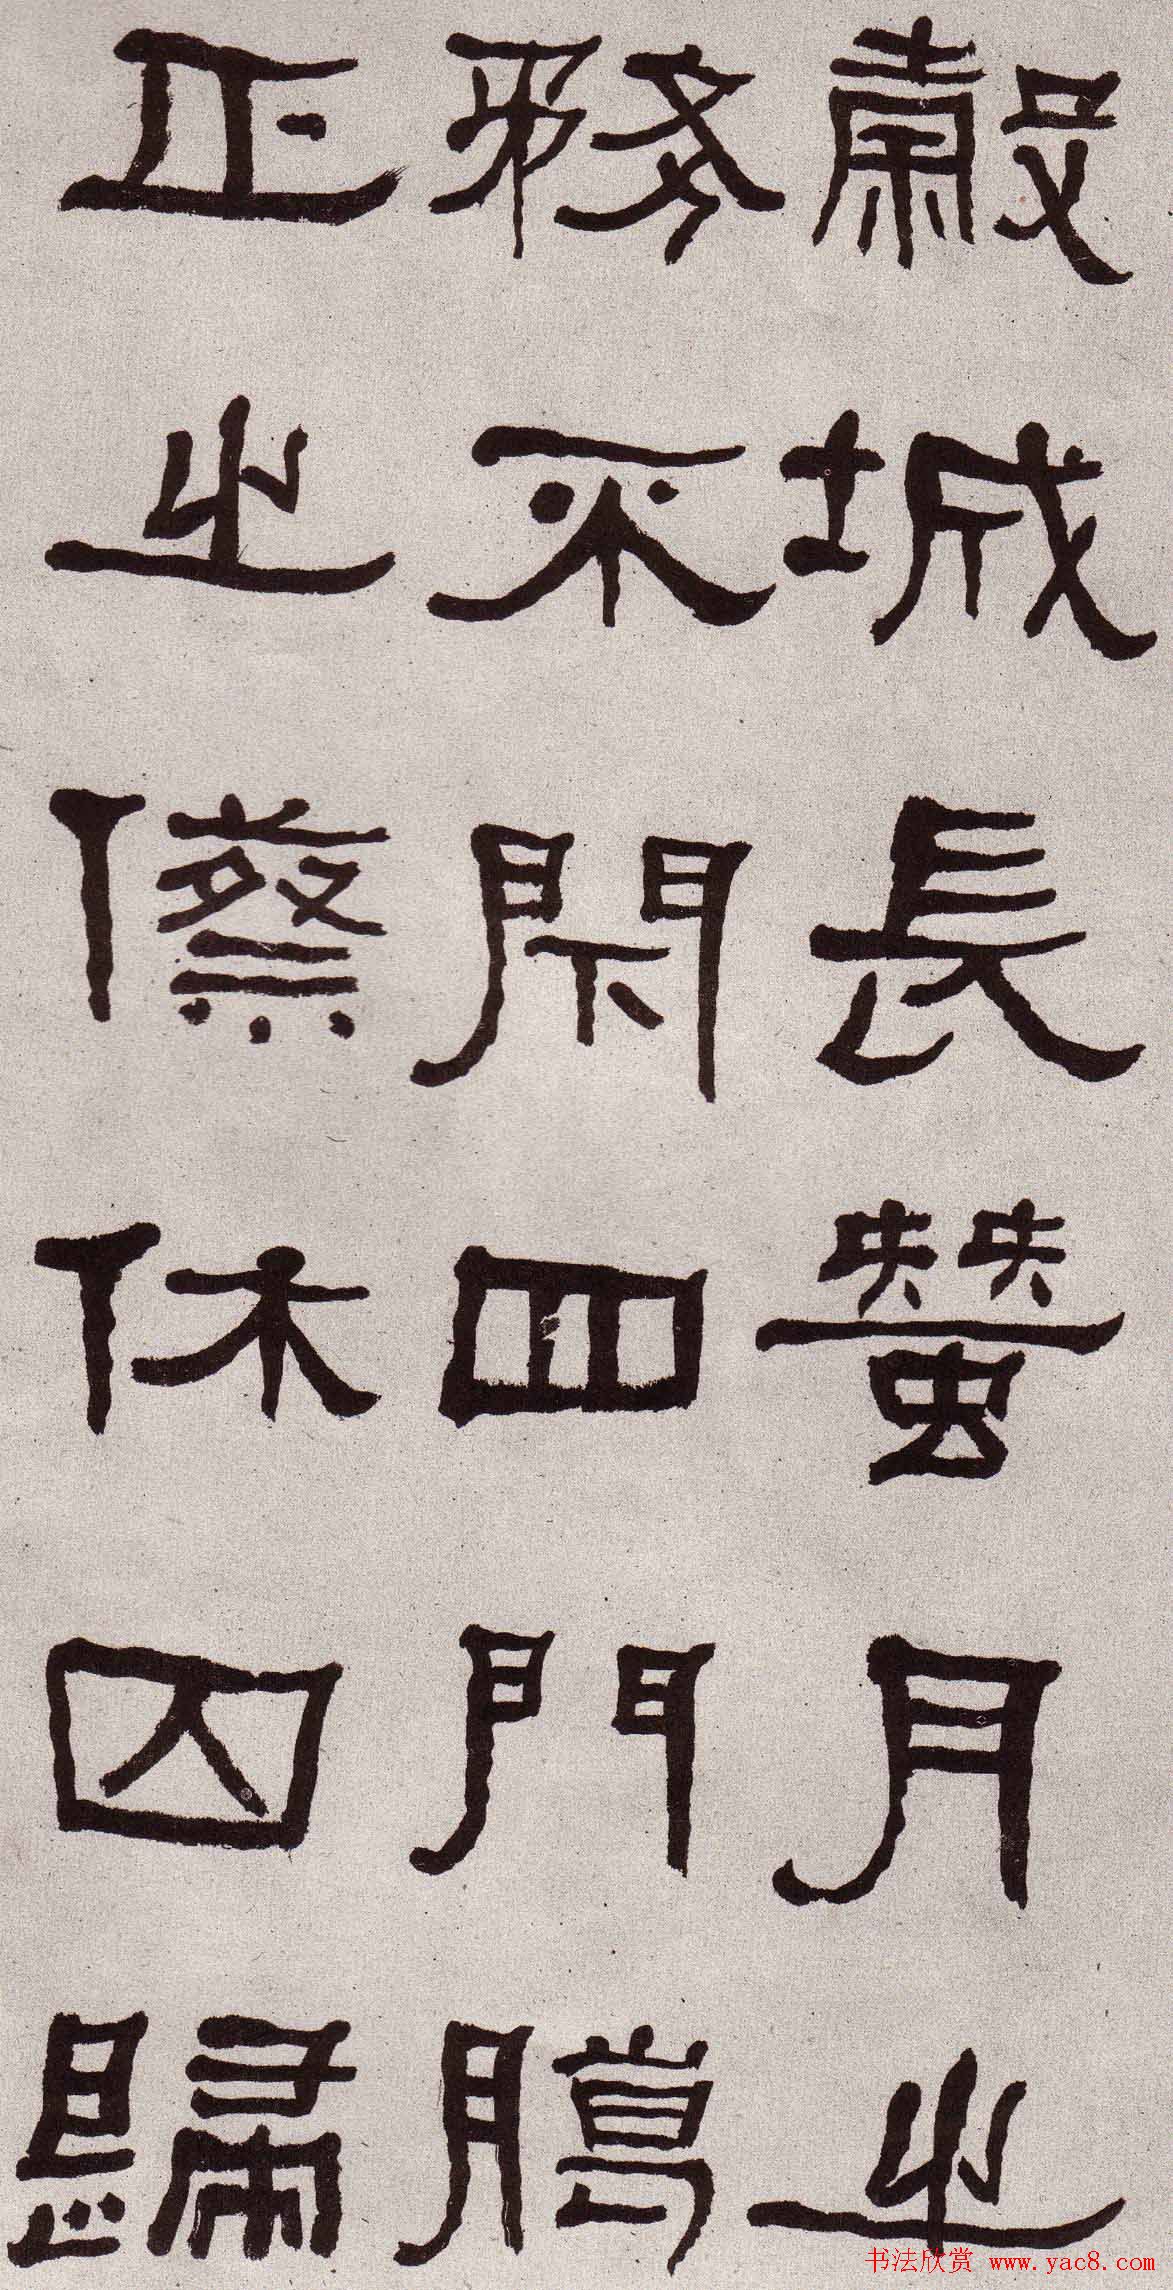 穀城長蠶月之
務不閇四門臘
正之傺休囚歸
书法欣赏 www.yac8.com